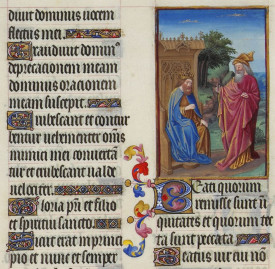 diuit dominus uocem
fletus mei.
Exaudiuit dominꝰ
deprecacionem meam
dominus oracionem
meam suscepit.
Erubescant et contur
bentur uehementer om̄s
inimici mei conuertā
tur et erubescant ual de
uelociter.
Gloria pr̄i et filio
et spiritui sancto.
Sicut erat in princi
pio et nunc et semper
Beati quorum
remisse sunt ī
quitates et quorum tec
ta sunt peccata.
Beatus uir cui nō